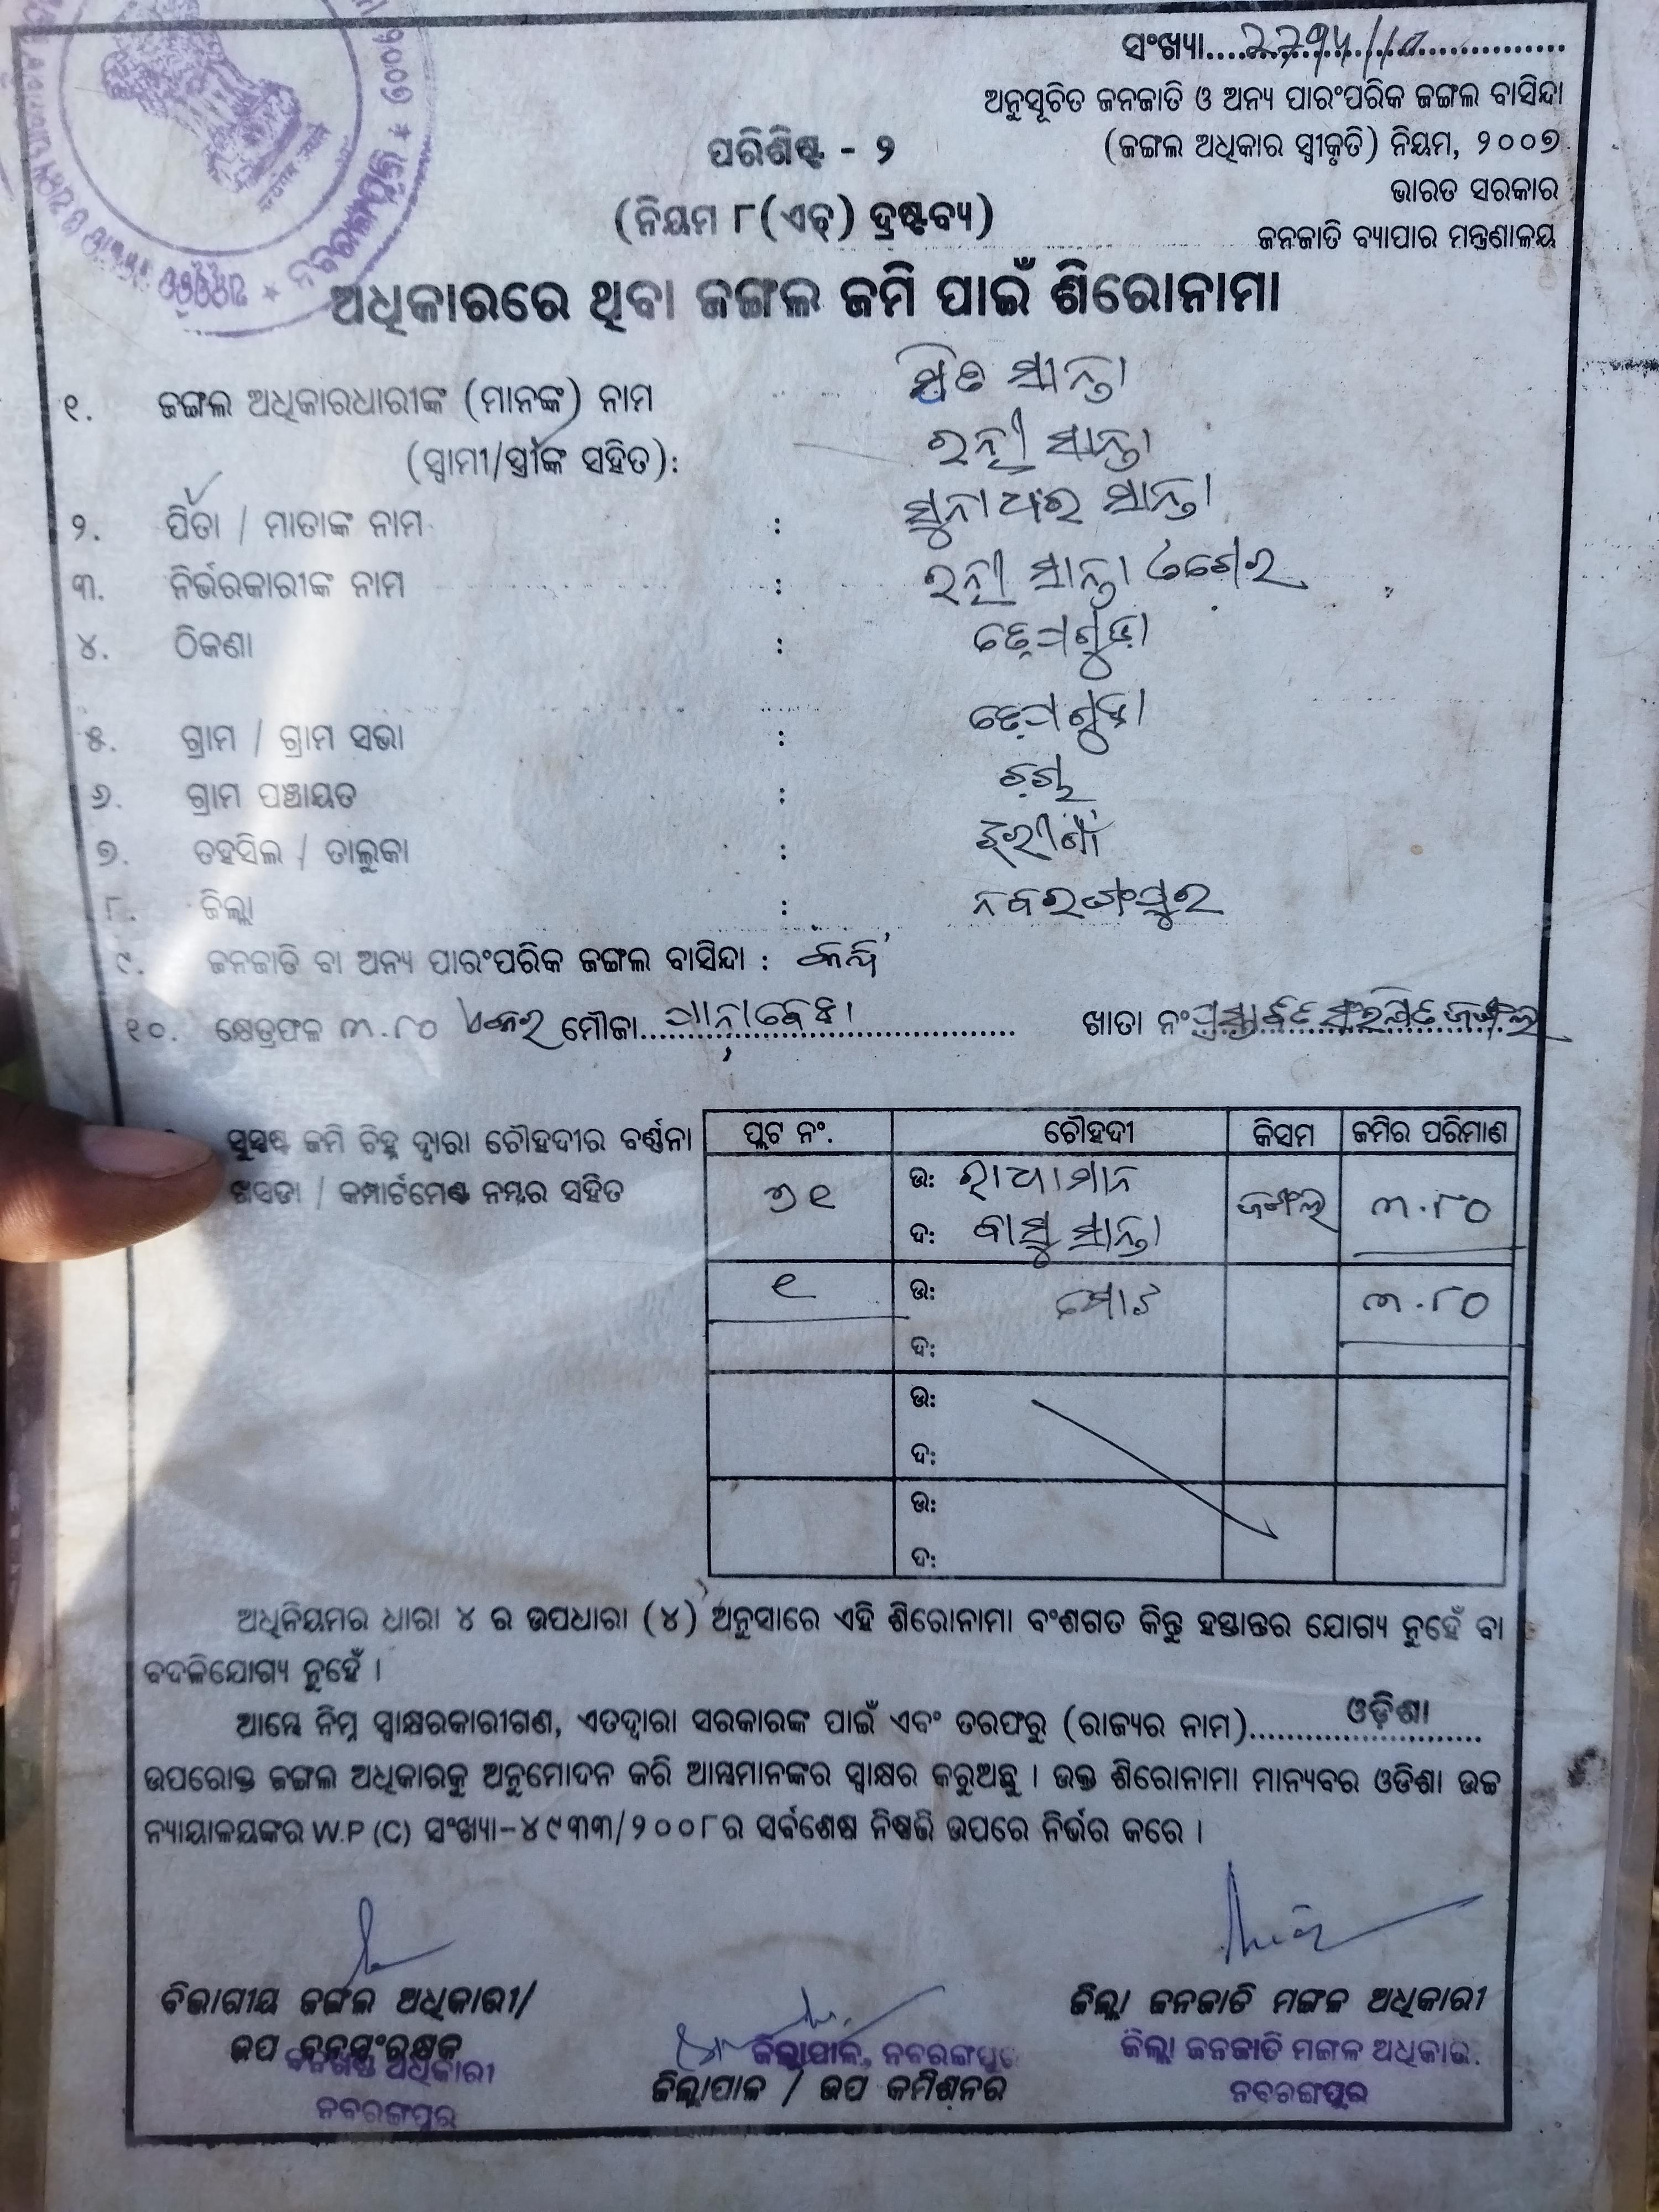 ସଂଖ୍ୟା
ଅନୁସୂଚିତ ଜନଜାତି ଓ ଅନ୍ୟ ପାରଂପରିକ ଜଙ୍ଗଲ ବାସିନ୍ଦା
(ଜଙ୍ଗଲ ଅଧିକାର ସ୍ୱୀକୃତି) ନିୟମ, ୨୦୦୭
ଭାରତ ସରକାର
ଜନଜାତି ବ୍ୟାପାର ମନ୍ତ୍ରଣାଳୟ
ପରିଶିଷ୍ଟ - ୨
(ନିୟମ ୮(ଏଚ୍) ଦ୍ରଷ୍ଟବ୍ୟ)
ଅଧିକାରରେ ଥିବା ଜଙ୍ଗଲ ଜମି ପାଇଁ ଶିରୋନାମା
୧. ଜଙ୍ଗଲ ଅଧିକାରଧାରୀଙ୍କ (ମାନଙ୍କ) ନାମ ସାନ୍ତା
(ସ୍ୱାମୀ/ସ୍ତ୍ରୀଙ୍କ ସହିତ): ସାନ୍ତା
୨. ପିତା / ମାତାଙ୍କ ନାମ : ସୁନାଧର ସାନ୍ତା
୩. ନିର୍ଭରକାରୀଙ୍କ ନାମ : ସାନ୍ତା
୪. ଠିକଣା :
୫. ଗ୍ରାମ / ଗ୍ରାମ ସଭା :
୬. ଗ୍ରାମ ପଞ୍ଚାୟତ :
୭. ତହସିଲ / ତାଲୁକା : ଝରୀଗାଁ
୮. ଜିଲ୍ଲା : ନବରଙ୍ଗପୁର
୯. ଜନଜାତି ବା ଅନ୍ୟ ପାରଂପରିକ ଜଙ୍ଗଲ ବାସିନ୍ଦା :
୧୦. କ୍ଷେତ୍ରଫଳ ୩.୮୦ ଏକର ମୌଜା ଖାତା ନଂ ପ୍ରସ୍ତାବିତ ସଂରକ୍ଷିତ ଜଙ୍ଗଲ
ସୁସ୍ପଷ୍ଟ ଜମି ଚିହ୍ନ ଦ୍ୱାରା ଚୌହଦୀର ବର୍ଣ୍ଣନା
ଖସଡା / କମ୍ପାର୍ଟମେଣ୍ଟ ନମ୍ବର ସହିତ
ପ୍ଲଟ ନଂ. ଚୌହଦୀ କିସମ ଜମିର ପରିମାଣ
୬୧ ଉ: ଜଙ୍ଗଲ ୩.୮୦
ଦ: ବାସୁ ସାନ୍ତା
୧ ଉ: ମୋଟ ୩.୮୦
ଦ:
ଉ:
ଦ:
ଉ:
ଦ:
ଅଧିନିୟମର ଧାରା ୪ ର ଉପଧାରା (୪) ଅନୁସାରେ ଏହି ଶିରୋନାମା ବଂଶଗତ କିନ୍ତୁ ହସ୍ତାନ୍ତର ଯୋଗ୍ୟ ନୁହେଁ ବା
ବଦଳିଯୋଗ୍ୟ ନୁହେଁ ।
ଆମ୍ଭେ ନିମ୍ନ ସ୍ୱାକ୍ଷରକାରୀଗଣ, ଏତଦ୍ୱାରା ସରକାରଙ୍କ ପାଇଁ ଏବଂ ତରଫରୁ (ରାଜ୍ୟର ନାମ) ଓଡ଼ିଶା
ଉପରୋକ୍ତ ଜଙ୍ଗଲ ଅଧିକାରକୁ ଅନୁମୋଦନ କରି ଆମ୍ଭମାନଙ୍କର ସ୍ୱାକ୍ଷର କରୁଅଛୁ । ଉକ୍ତ ଶିରୋନାମା ମାନ୍ୟବର ଓଡିଶା ଉଚ୍ଚ
ନ୍ୟାୟାଳୟଙ୍କର W.P (C) ସଂଖ୍ୟା-୪୯୩୩/୨୦୦୮ର ସର୍ବଶେଷ ନିଷ୍ପତ୍ତି ଉପରେ ନିର୍ଭର କରେ ।
ବିଭାଗୀୟ ଜଙ୍ଗଲ ଅଧିକାରୀ/
ଉପ ବନସଂରକ୍ଷକ
ବନଖଣ୍ଡ ଅଧିକାରୀ
ନବରଙ୍ଗପୁର
ଜିଲ୍ଲାପାଳ, ନବରଙ୍ଗପୁର
ଜିଲ୍ଲାପାଳ / ଉପ କମିଶନର
ଜିଲ୍ଲା ଜନଜାତି ମଙ୍ଗଳ ଅଧିକାରୀ
ଜିଲ୍ଲା ଜନଜାତି ମଙ୍ଗଳ ଅଧିକାରୀ
ନବରଙ୍ଗପୁର